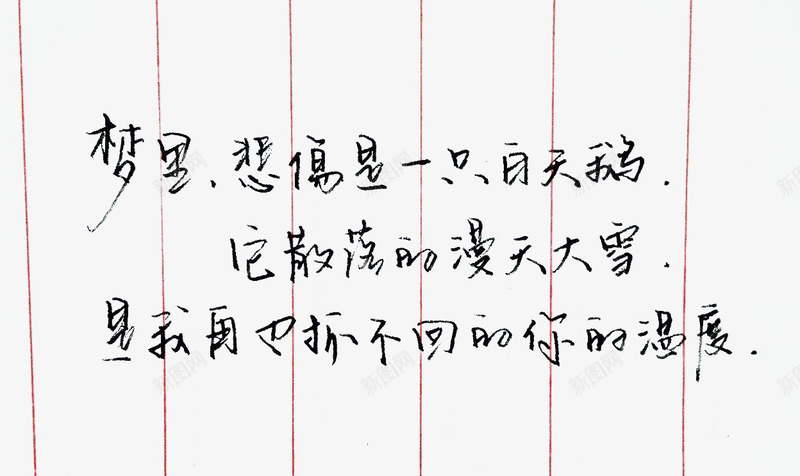 梦里、悲傷是一只白天鹅.
它散落的漫天大雪.
是我再也抓不回的你的温度.